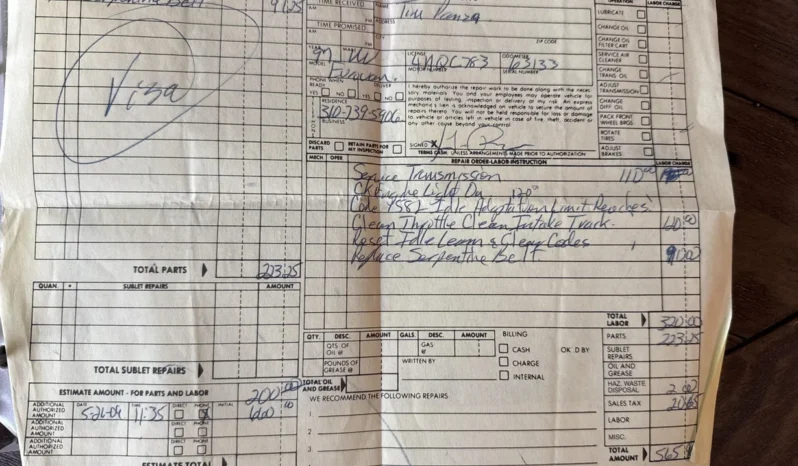 Belt 91 25
TIME RECEIVED
AM
PM
ADDRESS
Tim Panza
TIME PROMISED
AM
PM
CITY
ZIP CODE
YEAR
MODEL
LICENSE
ODOMETER
63133
MOTOR NUMBER
SERIAL NUMBER
Visa
PHONE WHEN READY
YES NO
DELIVER
YES NO
RESIDENCE
310-739-5906
BUSINESS
PHONE
I hereby authorize the repair work to be done along with the necessary materials. You and your employees may operate vehicle for purposes of testing, inspection or delivery at my risk. An express mechanic's lien is acknowledged on vehicle to secure the amount of repairs thereto. You will not be held responsible for loss or damage to vehicle or articles left in vehicle in case of fire, theft, accident or any other cause beyond your control.
SIGNED X
DISCARD PARTS
RETAIN PARTS FOR MY INSPECTION
TERMS CASH UNLESS ARRANGEMENTS MADE PRIOR TO AUTHORIZATION
OPERATION
LABOR CHARGE
LUBRICATE
CHANGE OIL
CHANGE OIL FILTER CART
SERVICE AIR CLEANER
CHANGE TRANS. OIL
ADJUST TRANSMISSION
CHANGE DIFF OIL
PACK FRONT WHEEL BRGS.
ROTATE TIRES
ADJUST BRAKES
MECH. OPER REPAIR ORDER-LABOR INSTRUCTION LABOR CHARGE
Service Transmission 110 00
CK Engine Light On
Code Idle Adaptation Limit
Clean Throttle Clean Intake Track.
Reset Idle Learn & Clear Codes
Replace Serpentine Belt
TOTAL PARTS 223.25
QUAN. SUBLET REPAIRS AMOUNT
TOTAL SUBLET REPAIRS
TOTAL LABOR 320.00
PARTS 223.25
SUBLET REPAIRS
OIL AND GREASE
HAZ. WASTE DISPOSAL 2.00
SALES TAX
LABOR
MISC.
TOTAL AMOUNT
QTY. DESC. AMOUNT GALS. DESC. AMOUNT
QTS. OF OIL @
GAS @
POUNDS OF GREASE @
WRITTEN BY
TOTAL OIL AND GREASE
BILLING
CASH
CHARGE
INTERNAL
OK'D BY
WE RECOMMEND THE FOLLOWING REPAIRS
1
2
3
ESTIMATE AMOUNT - FOR PARTS AND LABOR 200.00
ADDITIONAL AUTHORIZED AMOUNT DATE TIME 11:35 DIRECT PHONE INITIAL
ADDITIONAL AUTHORIZED AMOUNT DIRECT PHONE
ADDITIONAL AUTHORIZED AMOUNT DIRECT PHONE
ESTIMATE TOTAL